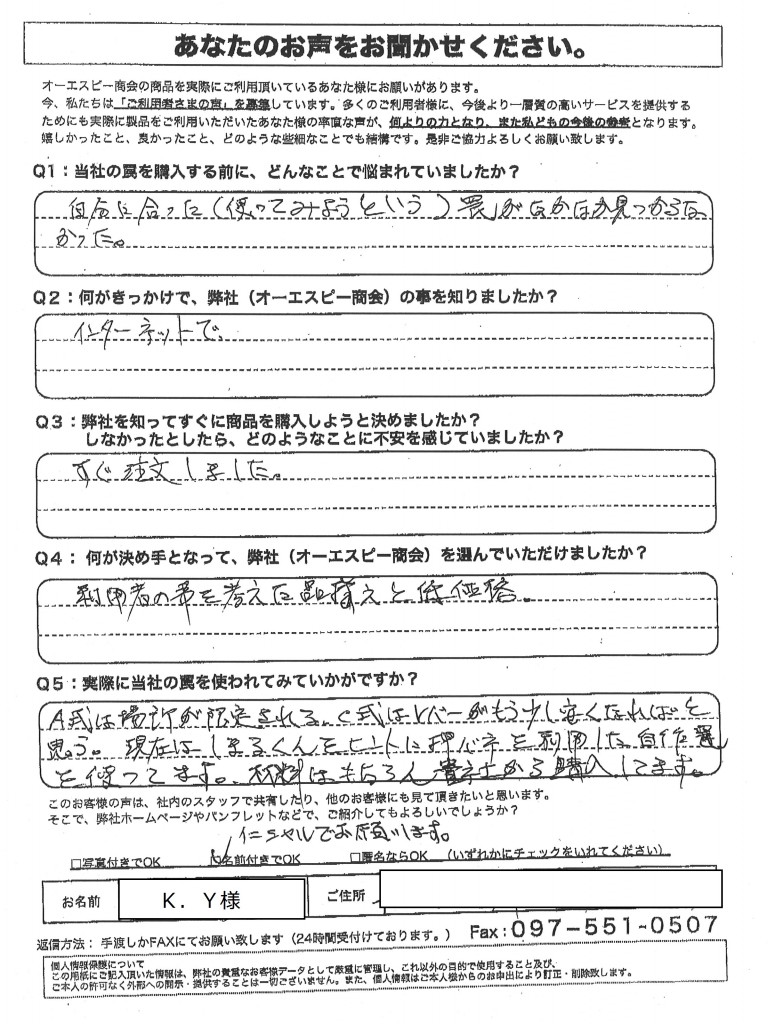 あなたのお声をお聞かせください。
オーエスピー商会の商品を実際にご利用頂いているあなた様にお願いがあります。
今、私たちは「ご利用者さまの声」を募集しています。多くのご利用者様に、今後より一層質の高いサービスを提供する
ためにも実際に製品をご利用いただいたあなた様の率直な声が、何よりの力となり、また私どもの今後の参考となります。
嬉しかったこと、良かったこと、どのような些細なことでも結構です。是非ご協力よろしくお願い致します。
Q1：当社の罠を購入する前に、どんなことで悩まれていましたか？
自分に合った（使ってみようという）罠がなかなか見つからな
かった。
Q2：何がきっかけで、弊社（オーエスピー商会）の事を知りましたか？
インターネットで。
Q3：弊社を知ってすぐに商品を購入しようと決めましたか？
しなかったとしたら、どのようなことに不安を感じていましたか？
すぐ注文しました。
Q4： 何が決め手となって、弊社（オーエスピー商会）を選んでいただけましたか？
利用者の事を考えた品揃えと低価格。
Q5：実際に当社の罠を使われてみていかがですか？
A式は場所が限定される、C式はレバーがもう少し安くなればと
思う。現在はしまるくんをヒントに押バネを利用した自作罠
を使ってます。材料はもちろん貴社から購入してます。
このお客様の声は、社内のスタッフで共有したり、他のお客様にも見て頂きたいと思います。
そこで、弊社ホームページやパンフレットなどで、ご紹介してもよろしいでしょうか？
イニシャルでお願いします。
□写真付きでOK ☑名前付きでOK □匿名ならOK （いずれかにチェックをいれてください）
お名前 K．Y様 ご住所
返信方法： 手渡しかFAXにてお願い致します（24時間受付けております。） Fax：097-551-0507
個人情報保護について
この用紙にご記入頂いた情報は、弊社の貴重なお客様データとして厳重に管理し、これ以外の目的で使用すること及び、
ご本人の許可なく外部への開示・提供することは一切ございません。また、個人情報はご本人様からのお申出により訂正・削除致します。